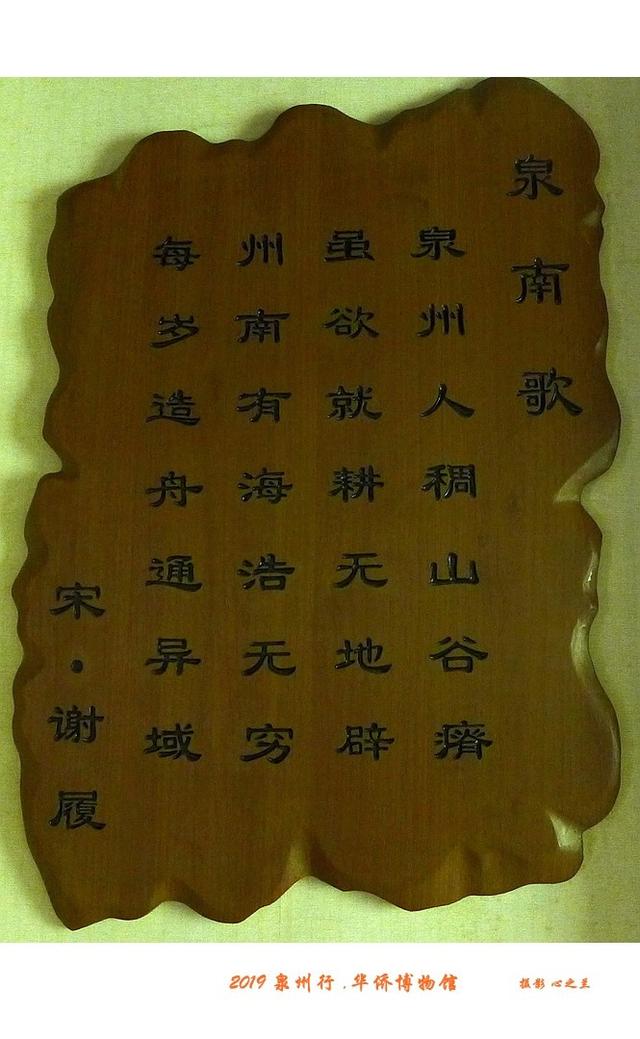 泉南歌
泉州人稠山谷瘠
虽欲就耕无地辟
州南有海浩无穷
每岁造舟通异域
宋·谢履
2019 泉州行 .华侨博物馆
摄影 心之兰